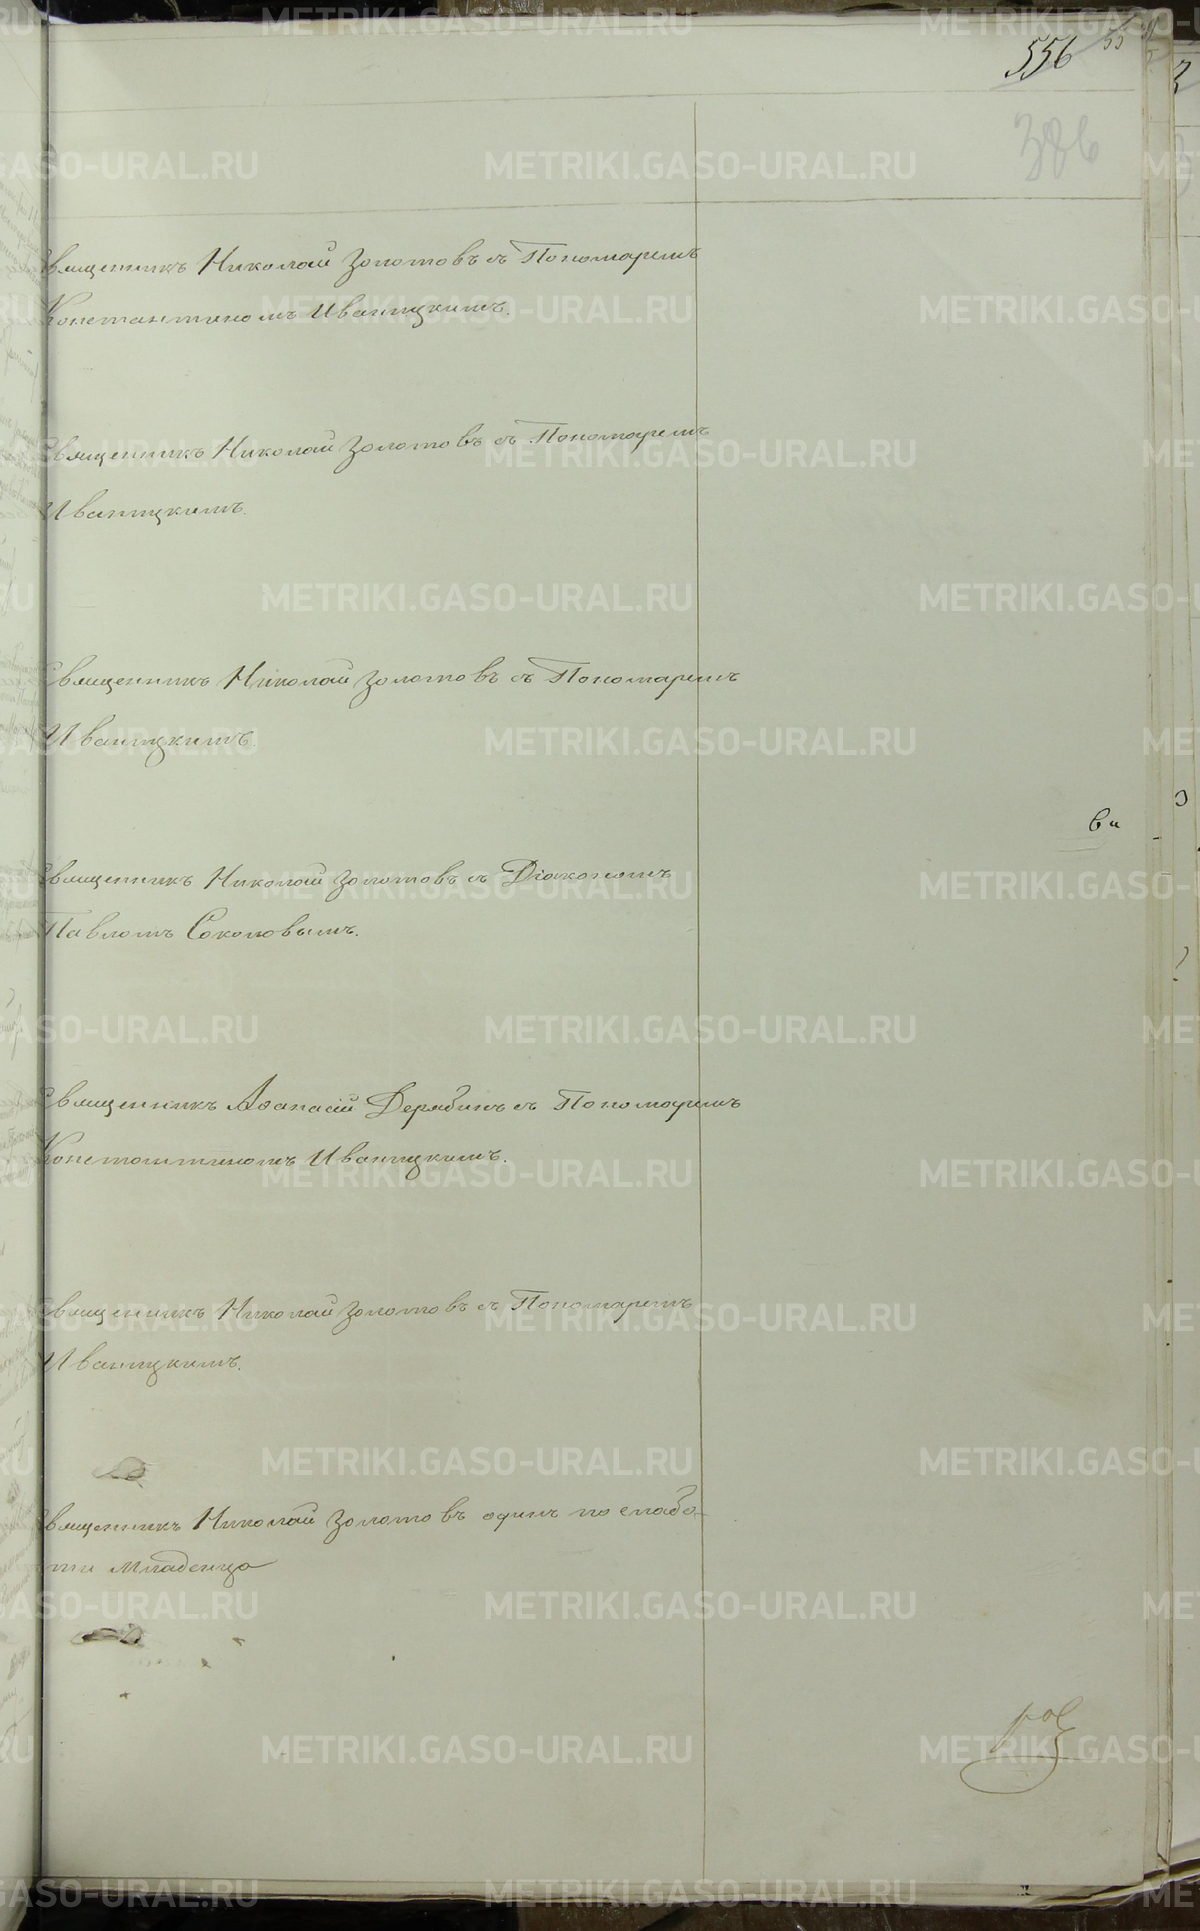 556
386
Священникъ Николай Золотовъ съ Пономаремъ
Константиномъ Иваницкимъ.
Священникъ Николай Золотовъ съ Пономаремъ
Иваницкимъ.
Священникъ Николай Золотовъ съ Пономаремъ
Иваницкимъ.
Священникъ Николай Золотовъ съ Діакономъ
Павломъ Соколовымъ.
Священникъ Аѳанасій Дерябинъ съ Пономаремъ
Константиномъ Иваницкимъ.
Священникъ Николай Золотовъ съ Пономаремъ
Иваницкимъ.
Священникъ Николай Золотовъ одинъ по слабо-
сти младенца
METRIKI.GASO-URAL.RU